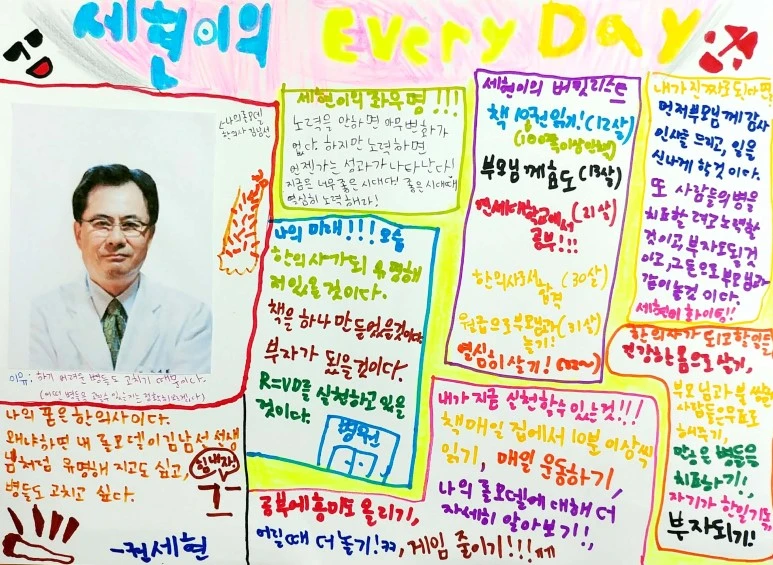 세현이의 Every Day
나의 롤모델
한의사 김남선
이유: 하기 어려운 병들도 고치기 때문이다.
나의 꿈은 한의사이다.
왜냐하면 내 롤모델이 김남선 선생
님처럼 유명해 지고도 싶고,
병들도 고치고 싶다.
힘내자!
-권세현
세현이의 좌우명!!!
노력을 안하면 아무변화가
없다. 하지만 노력하면
언젠가는 성과가 나타난다!
지금은 너무 좋은 시대다! 좋은 시대때
열심히 노력해라!
나의 미래!!! 모습
한의사가 되 유명해
져 있을 것이다.
책을 하나 만들었을것이다
부자가 됬을것이다.
R=VD를 실현하고 있을
것이다.
병원
세현이의 버킷리스트
책 10권 읽기! (12살)
(100쪽이상
부모님께 효도 (13살)
연세대학교에서 (21살)
공부!!!
한의사로서 합격 (30살)
월급으로 부모님과 (31살)
놀기!
열심히 살기!
내가 진짜로 된다면
먼저 부모님께 감사
인사를 드리고, 일을
신나게 할 것 이다.
또 사람들의 병을
치료할 려고 노력할
것이고, 부자도 될 것
이고, 그 돈으로 부모님과
같이 놀 것 이다.
세현이 화이팅!!
한의사가 되고 할 일들
건강한 몸으로 살기,
부모님과
사람들은 무료로
해주기,
많은 병들을
치료하기!,
자기가 한 일 기록,
부자되기!
내가 지금 실천할 수 있는 것!!!
책 매일 집에서 10분 이상씩
읽기, 매일 운동하기,
나의 롤모델에 대해 더
자세히 알아보기!,
공부에 흥미도 올리기,
어릴 때 더 놀기!ㅋㅋ, 게임 줄이기!!!